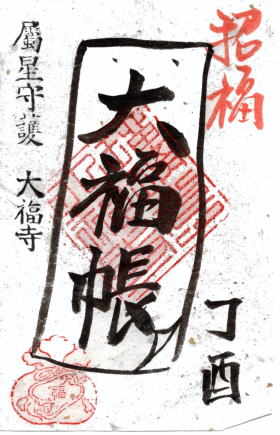 招福
大福帳
丁酉
屬星守護 大福寺